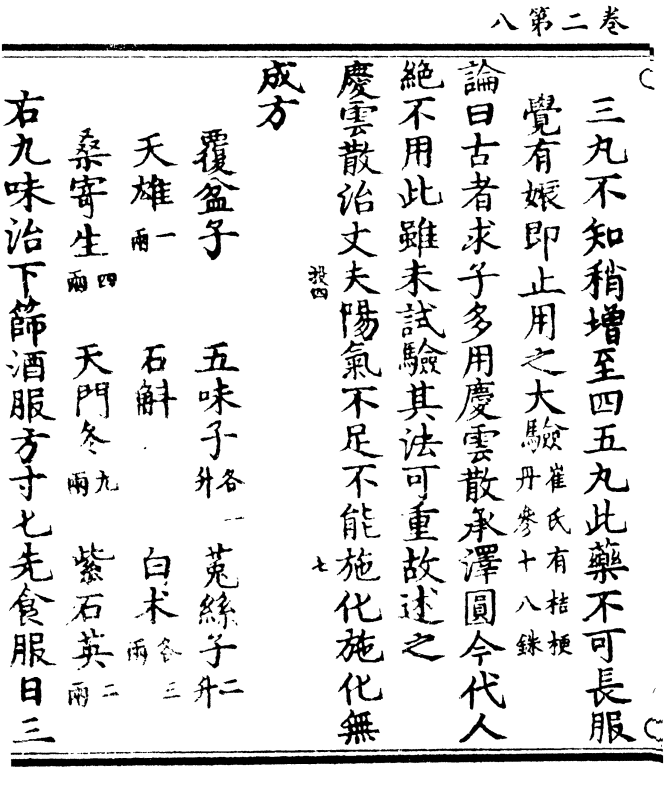 卷二第八
三丸不知稍增至四五丸此藥不可長服
覺有娠即止用之大驗崔氏有桔梗丹參十八銖
論曰古者求子多用慶雲散承澤圓今代人
絕不用此雖未試驗其法可重故述之
慶雲散治丈夫陽氣不足不能施化施化無
投四
七
成方
覆盆子 五味子各一升 菟絲子二升
天雄一兩 石斛 白朮各三兩
桑寄生四兩 天門冬九兩 紫石英二兩
右九味治下篩酒服方寸七先食服日三